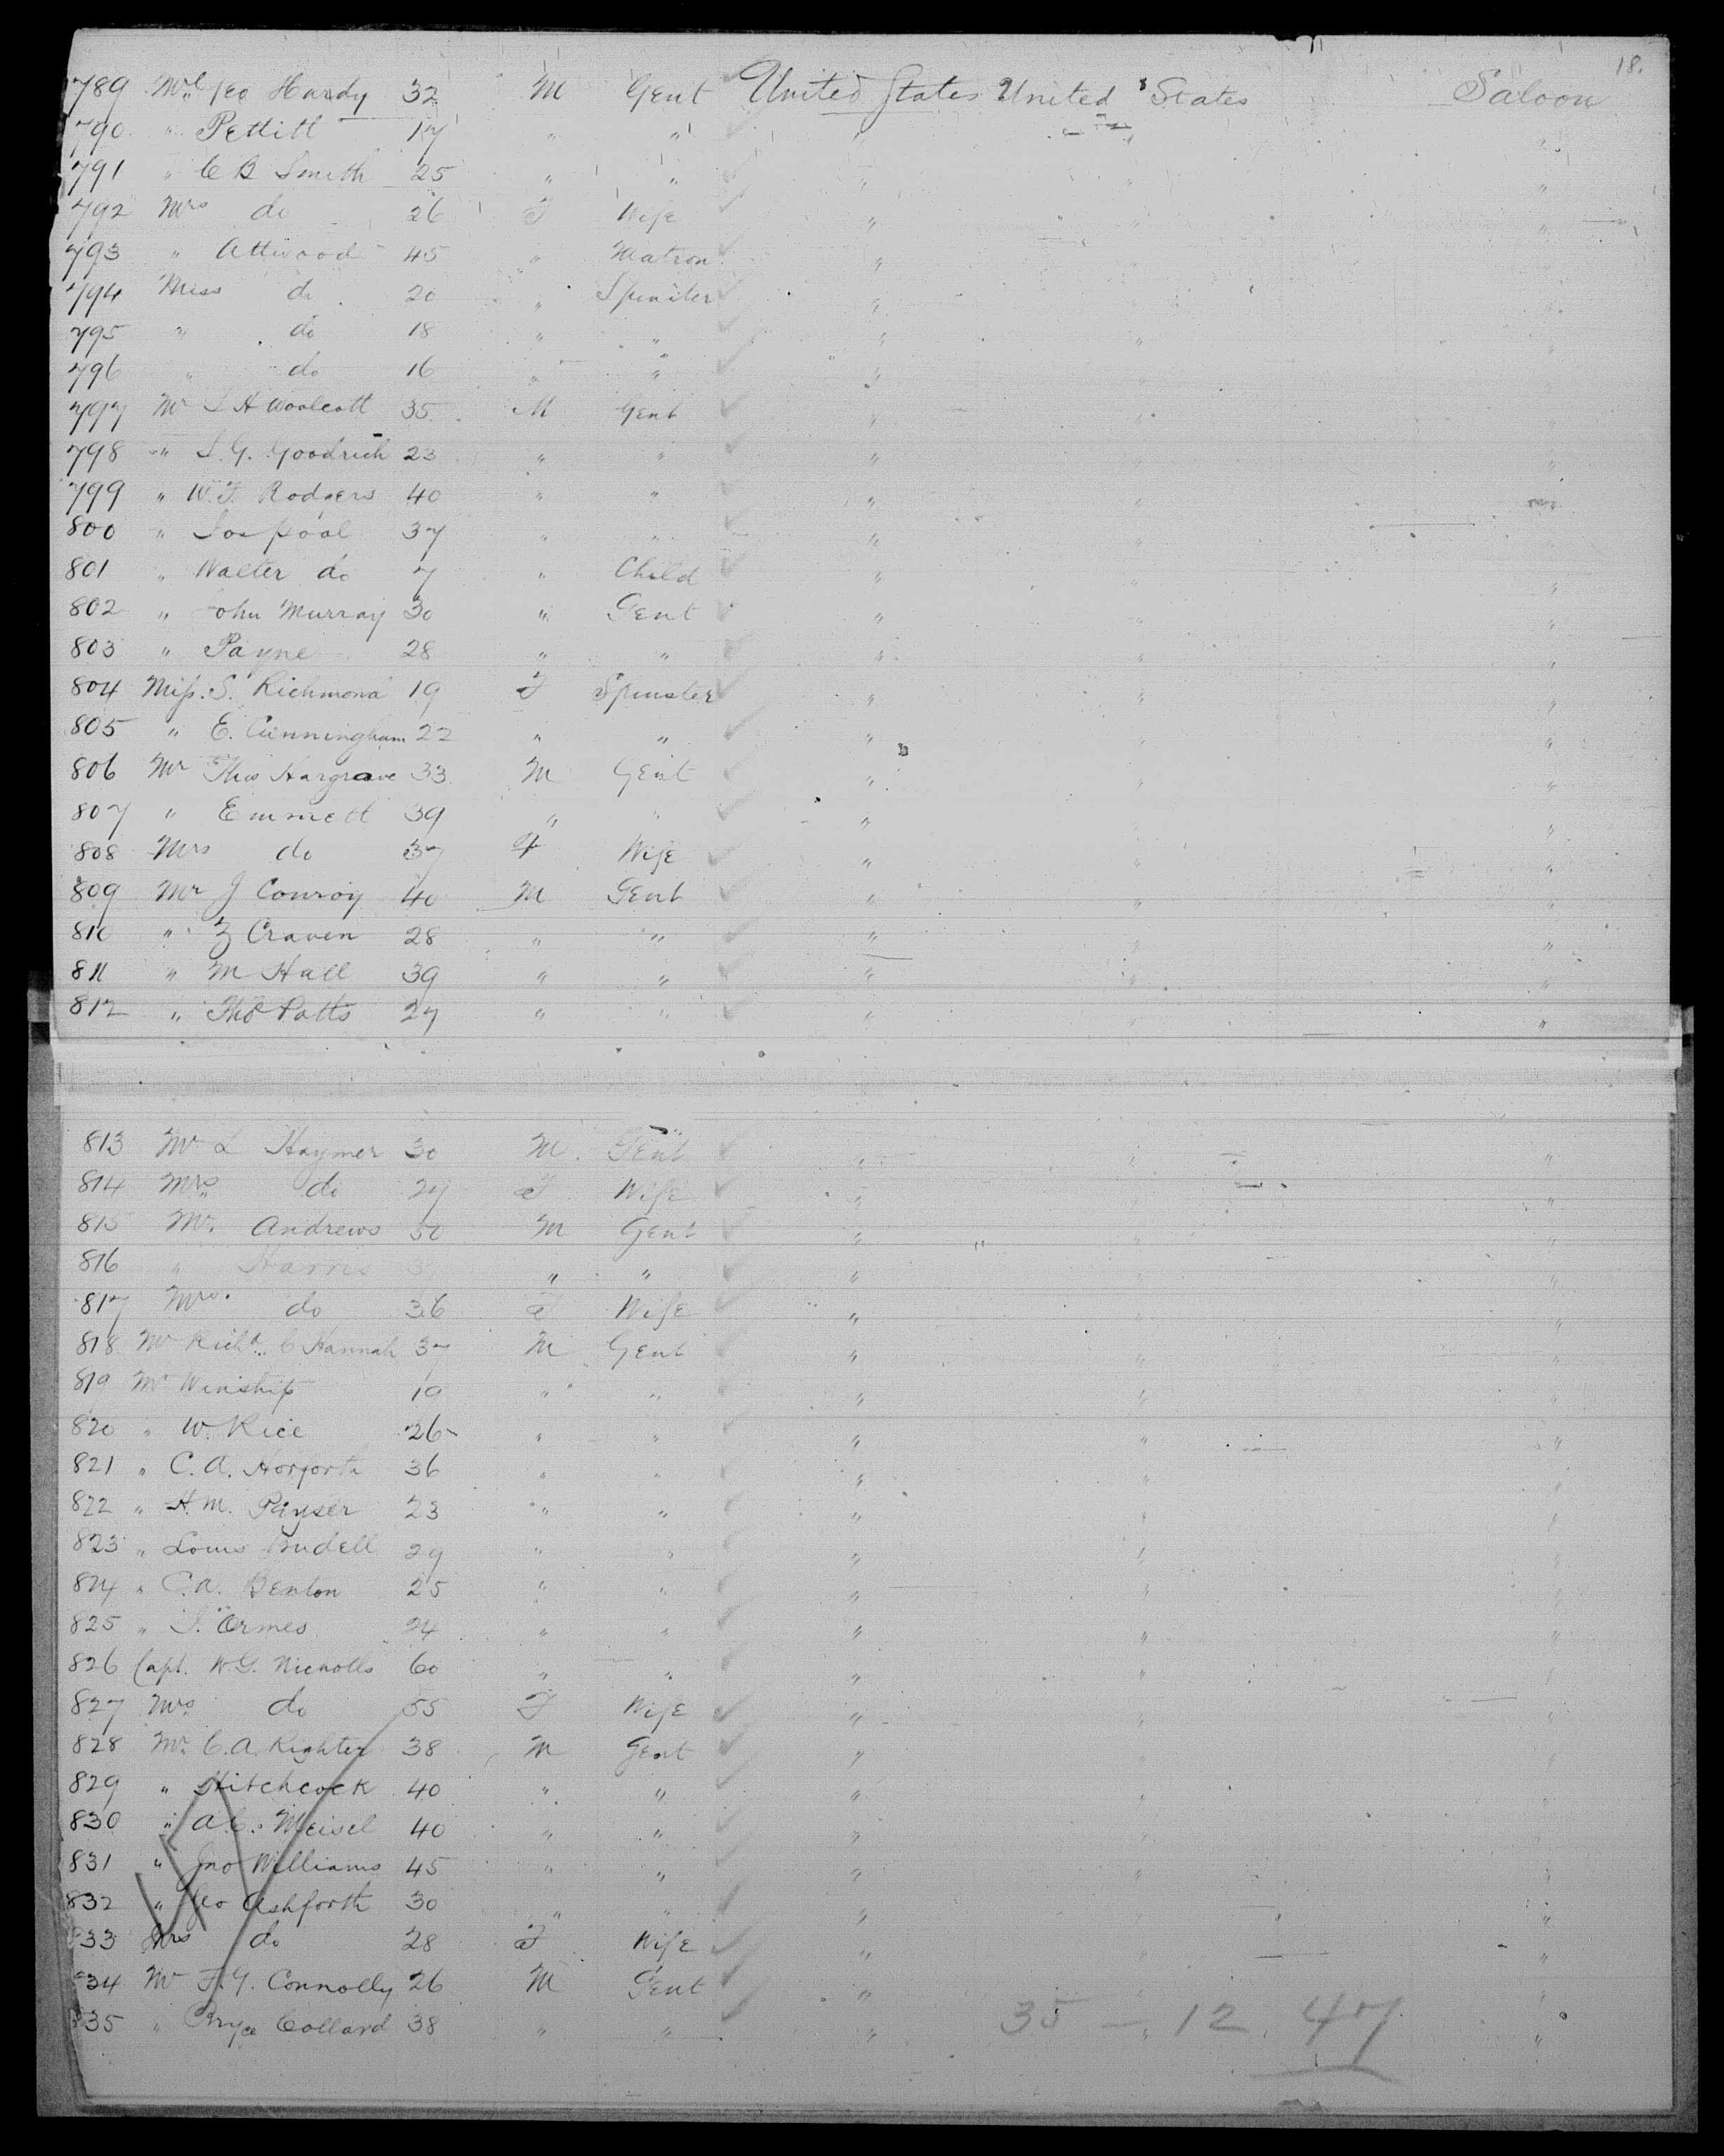 18.
789 Mr Geo Hardy 32 M Gent United States United States Saloon
790 " Pettitt 17 " " " " "
791 " C B Smith 25 " " " " "
792 Mrs do 26 F Wife " " "
793 " Attwood 45 " Matron " "
794 Miss do 20 " Spinster " "
795 " do 18 " " " " "
796 " do 16 " " " "
797 Mr S H Woolcott 35 M Gent " "
798 " S. G. Goodrich 23 " " " " "
799 " W. F. Rodgers 40 " " " " "
800 " Jos Pool 37 " " " " "
801 " Walter do 7 " Child " " "
802 " John Murray 30 " Gent " " "
803 " Payne 28 " " " " "
804 Miss. S. Richmond 19 F Spinster " " "
805 " E. Cunningham 22 " " " " "
806 Mr Thos Hargrave 33 M Gent " " "
807 " Emmett 39 " " " " "
808 Mrs do 37 F Wife " " "
809 Mr J Conroy 40 M Gent " " "
810 " Z Craven 28 " " " " "
811 " M Hall 39 " " " " "
812 " Thos Potts 27 " " " " "
813 Mr L Haymer 30 M Gent " " "
814 Mrs do 27 F Wife " " "
815 Mr. Andrews 50 M Gent " " "
816 " Harris " " " " "
817 Mrs. do 36 F Wife " " "
818 Mr Richd. C Hannah 37 M Gent " " "
819 Mr Winship 19 " " " " "
820 " W. Rice 26 " " " " "
821 " C. A. Horforth 36 " " " " "
822 " H. M. Peyser 23 " " " " "
823 " Louis 29 " " " " "
824 " C. A. Benton 25 " " " " "
825 " Ormes 24 " " " " "
826 Capt. W. G. Nicholls 60 " " " " "
827 Mrs do 55 F Wife " " "
828 Mr. C. A. Righter 38 M Gent " " "
829 " Hitchcock 40 " " " " "
830 " A. C. Meisel 40 " " " " "
831 " Jno Williams 45 " " " " "
832 " Geo Ashforth 30 " " " " "
833 Mrs do 28 F Wife " " "
834 Mr F. G. Connolly 26 M Gent " " "
835 " Bryce Collard 38 " " " " "
35 — 12. 47